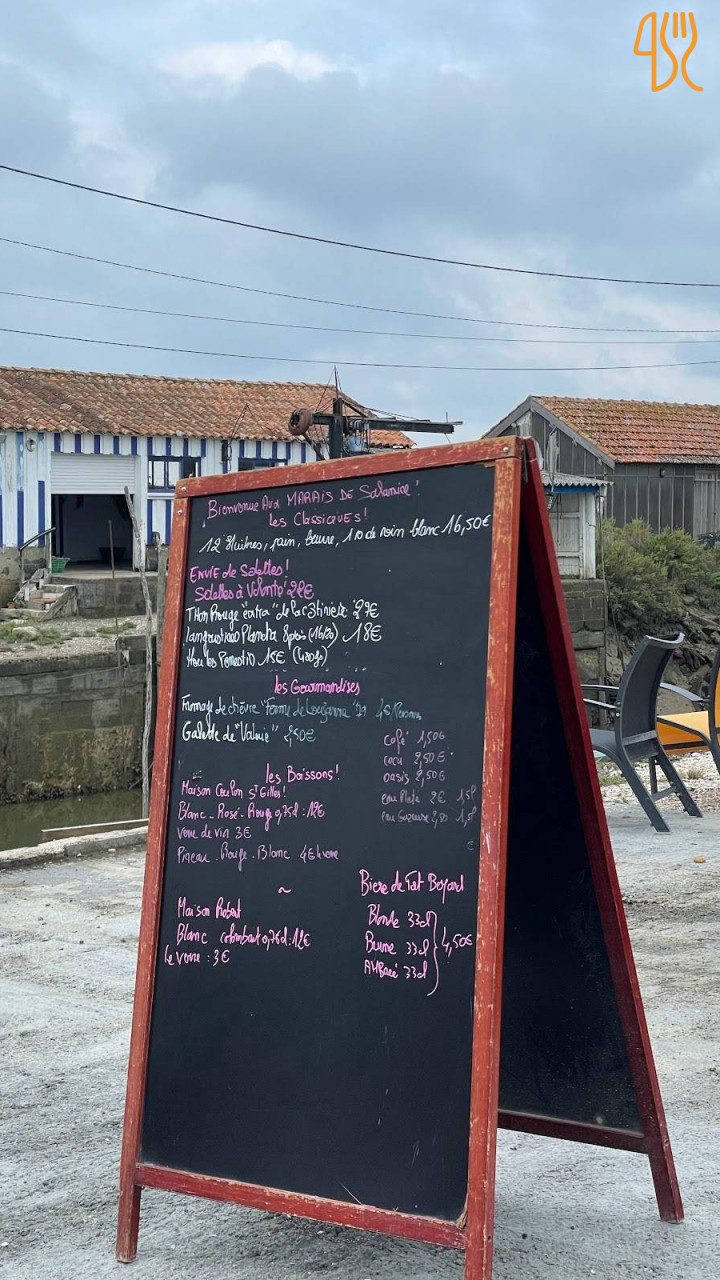 Bienvenue Aux MARAIS DE Salamine!
les Classiques!
12 Huitres, pain, beurre, de vin blanc 16,50€
ENVIE de Salettes!
à Volonté 22€
Thon Rouge "extra" de la
langoustines Plancha (16/20) 18€
15€ (400g)
les Gourmandises
Fromage de chèvre "Ferme de 4€/Personne
Galette de
café 1,50€
coca 2,50€
oasis 2,50€
eau Plate 2€
eau Gazeuse 2,50
les Boissons!
Maison Coulon St Gilles!
Blanc - Rosé - Rouge 0,75cl : 12€
verre de vin 3€
Pineau . Rouge . Blanc 4€ le verre
~
Maison Robert
Blanc colombard 0,75cl : 12€
le verre : 3€
Bière de Fort Boyard
Blonde 33cl
Brune 33cl 4,50€
AMbreé 33cl